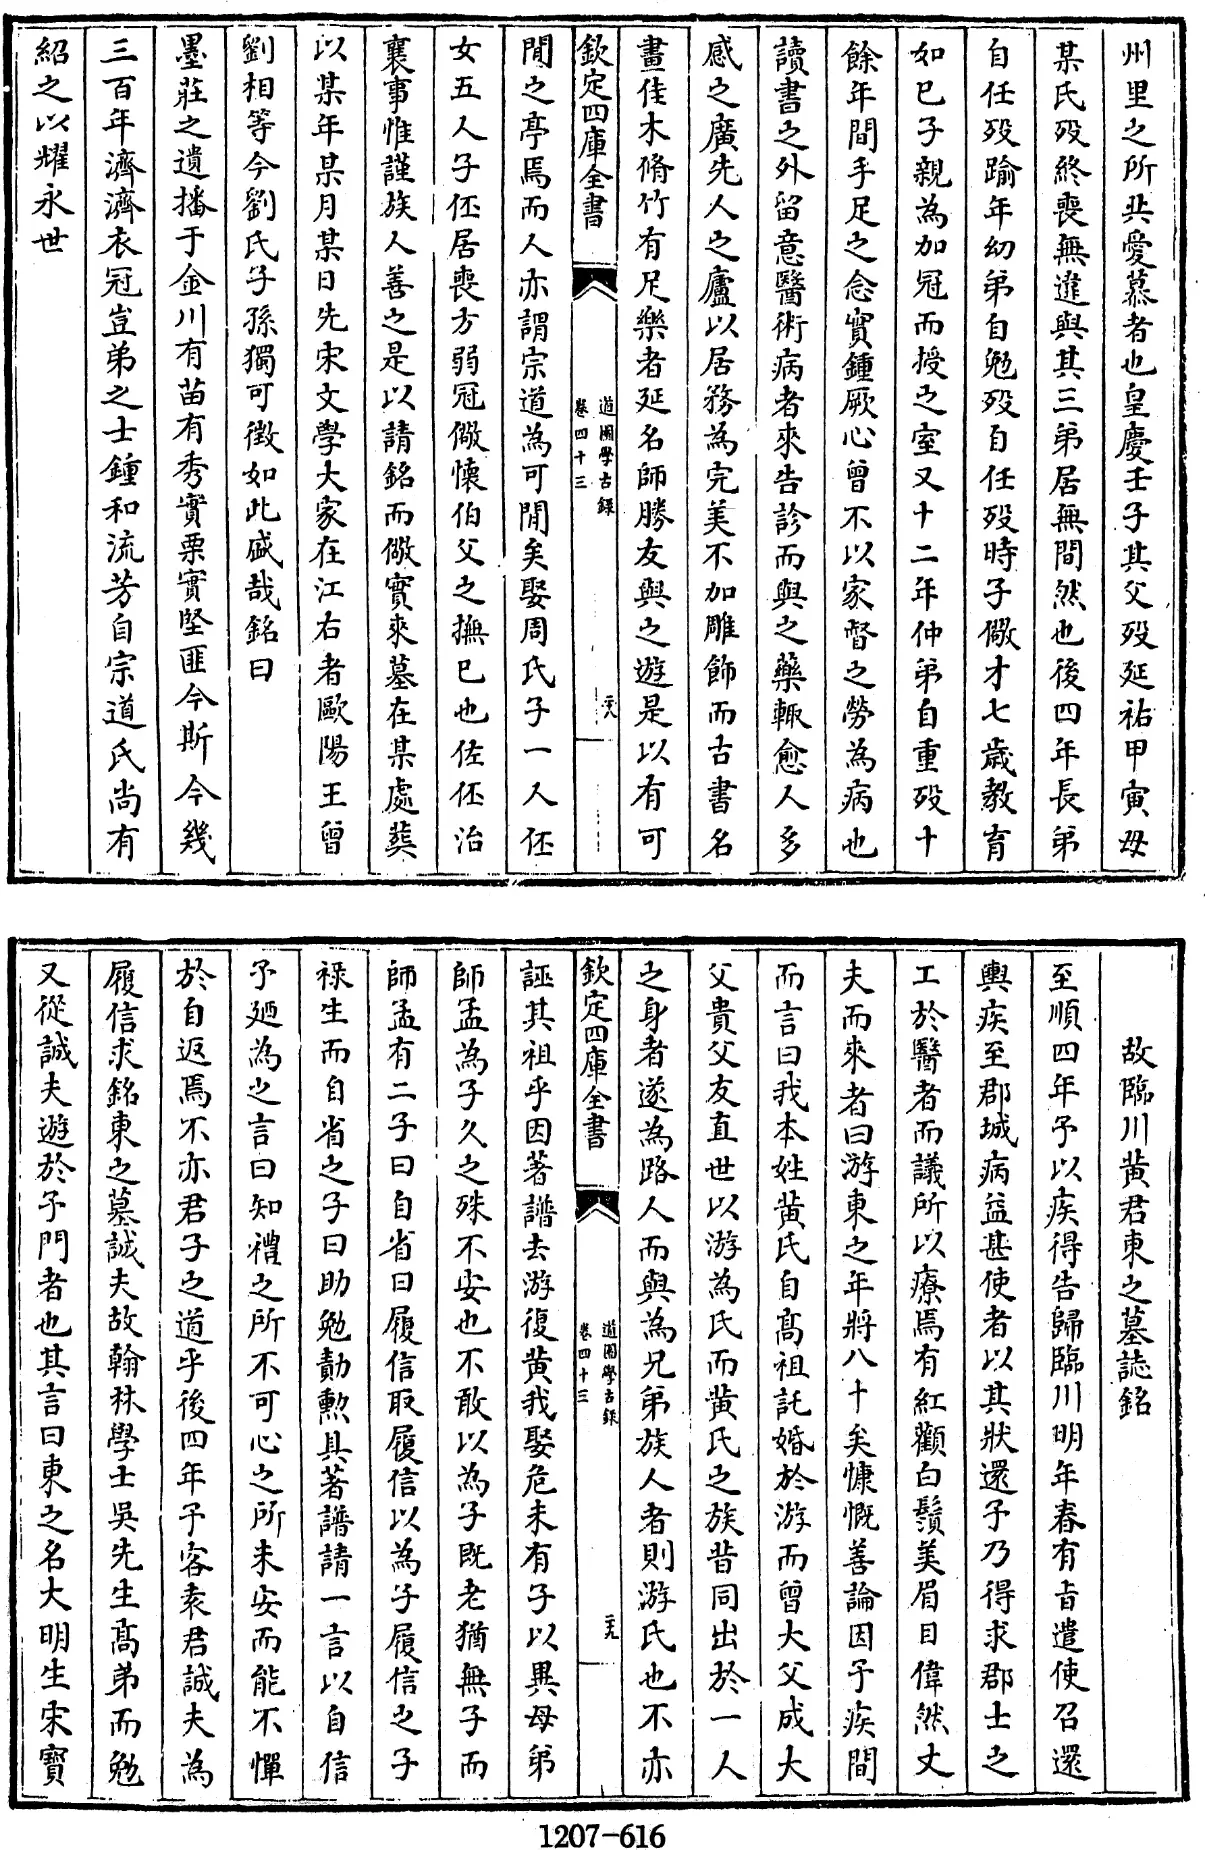 州里之所共愛慕者也皇慶壬子其父歿延祐甲寅母
某氏歿終喪無違與其三弟居無間然也後四年長弟
自任歿踰年幼弟自勉歿自任歿時子儆才七歲教育
如已子親為加冠而授之室又十二年仲弟自重歿十
餘年間手足之念實鍾厥心曾不以家督之勞為病也
讀書之外留意醫術病者來告診而與之藥輙愈人多
感之廣先人之廬以居務為完美不加雕飾而古書名
畫佳木脩竹有足樂者延名師勝友與之遊是以有可
欽定四庫全書
道園學古録
卷四十三
二十八
閒之亭焉而人亦謂宗道為可閒矣娶周氏子一人伾
女五人子伾居喪方弱冠儆懷伯父之撫已也佐伾治
襄事惟謹族人善之是以請銘而儆實來墓在某處葬
以某年某月某日先宋文學大家在江右者歐陽王曾
劉相等今劉氏子孫獨可徵如此盛哉銘曰
墨莊之遺播于金川有苗有秀實栗實堅匪今斯今幾
三百年濟濟衣冠豈弟之士鍾和流芳自宗道氏尚有
紹之以耀永世
故臨川黄君東之墓誌銘
至順四年予以疾得告歸臨川明年春有㫖遣使召還
輿疾至郡城病益甚使者以其狀還予乃得求郡士之
工於醫者而議所以療焉有紅顴白鬚美眉目偉然丈
夫而來者曰游東之年將八十矣慷慨善論因予疾間
而言曰我本姓黄氏自髙祖託婚於游而曾大父成大
父貴父友直世以游為氏而黄氏之族昔同出於一人
之身者遂為路人而與為兄弟族人者則游氏也不亦
欽定四庫全書
道園學古録
卷四十三
二十九
誣其祖乎因著譜去游復黄我娶危未有子以異母弟
師孟為子久之殊不安也不敢以為子既老猶無子而
師孟有二子曰自省曰履信取履信以為子履信之子
祿生而自省之子曰助勉勣勲具著譜請一言以自信
予廼為之言曰知禮之所不可心之所未安而能不憚
於自返焉不亦君子之道乎後四年予客袁君誠夫為
履信求銘東之墓誠夫故翰林學士吳先生髙弟而勉
又從誠夫遊於予門者也其言曰東之名大明生宋寳
1207-616